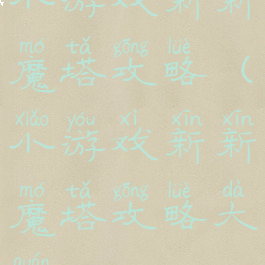 小游戏新新
mó tǎ gōng lüè
魔塔攻略（
xiǎo yóu xì xīn xīn
小游戏新新
mó tǎ gōng lüè dà
魔塔攻略大
quán